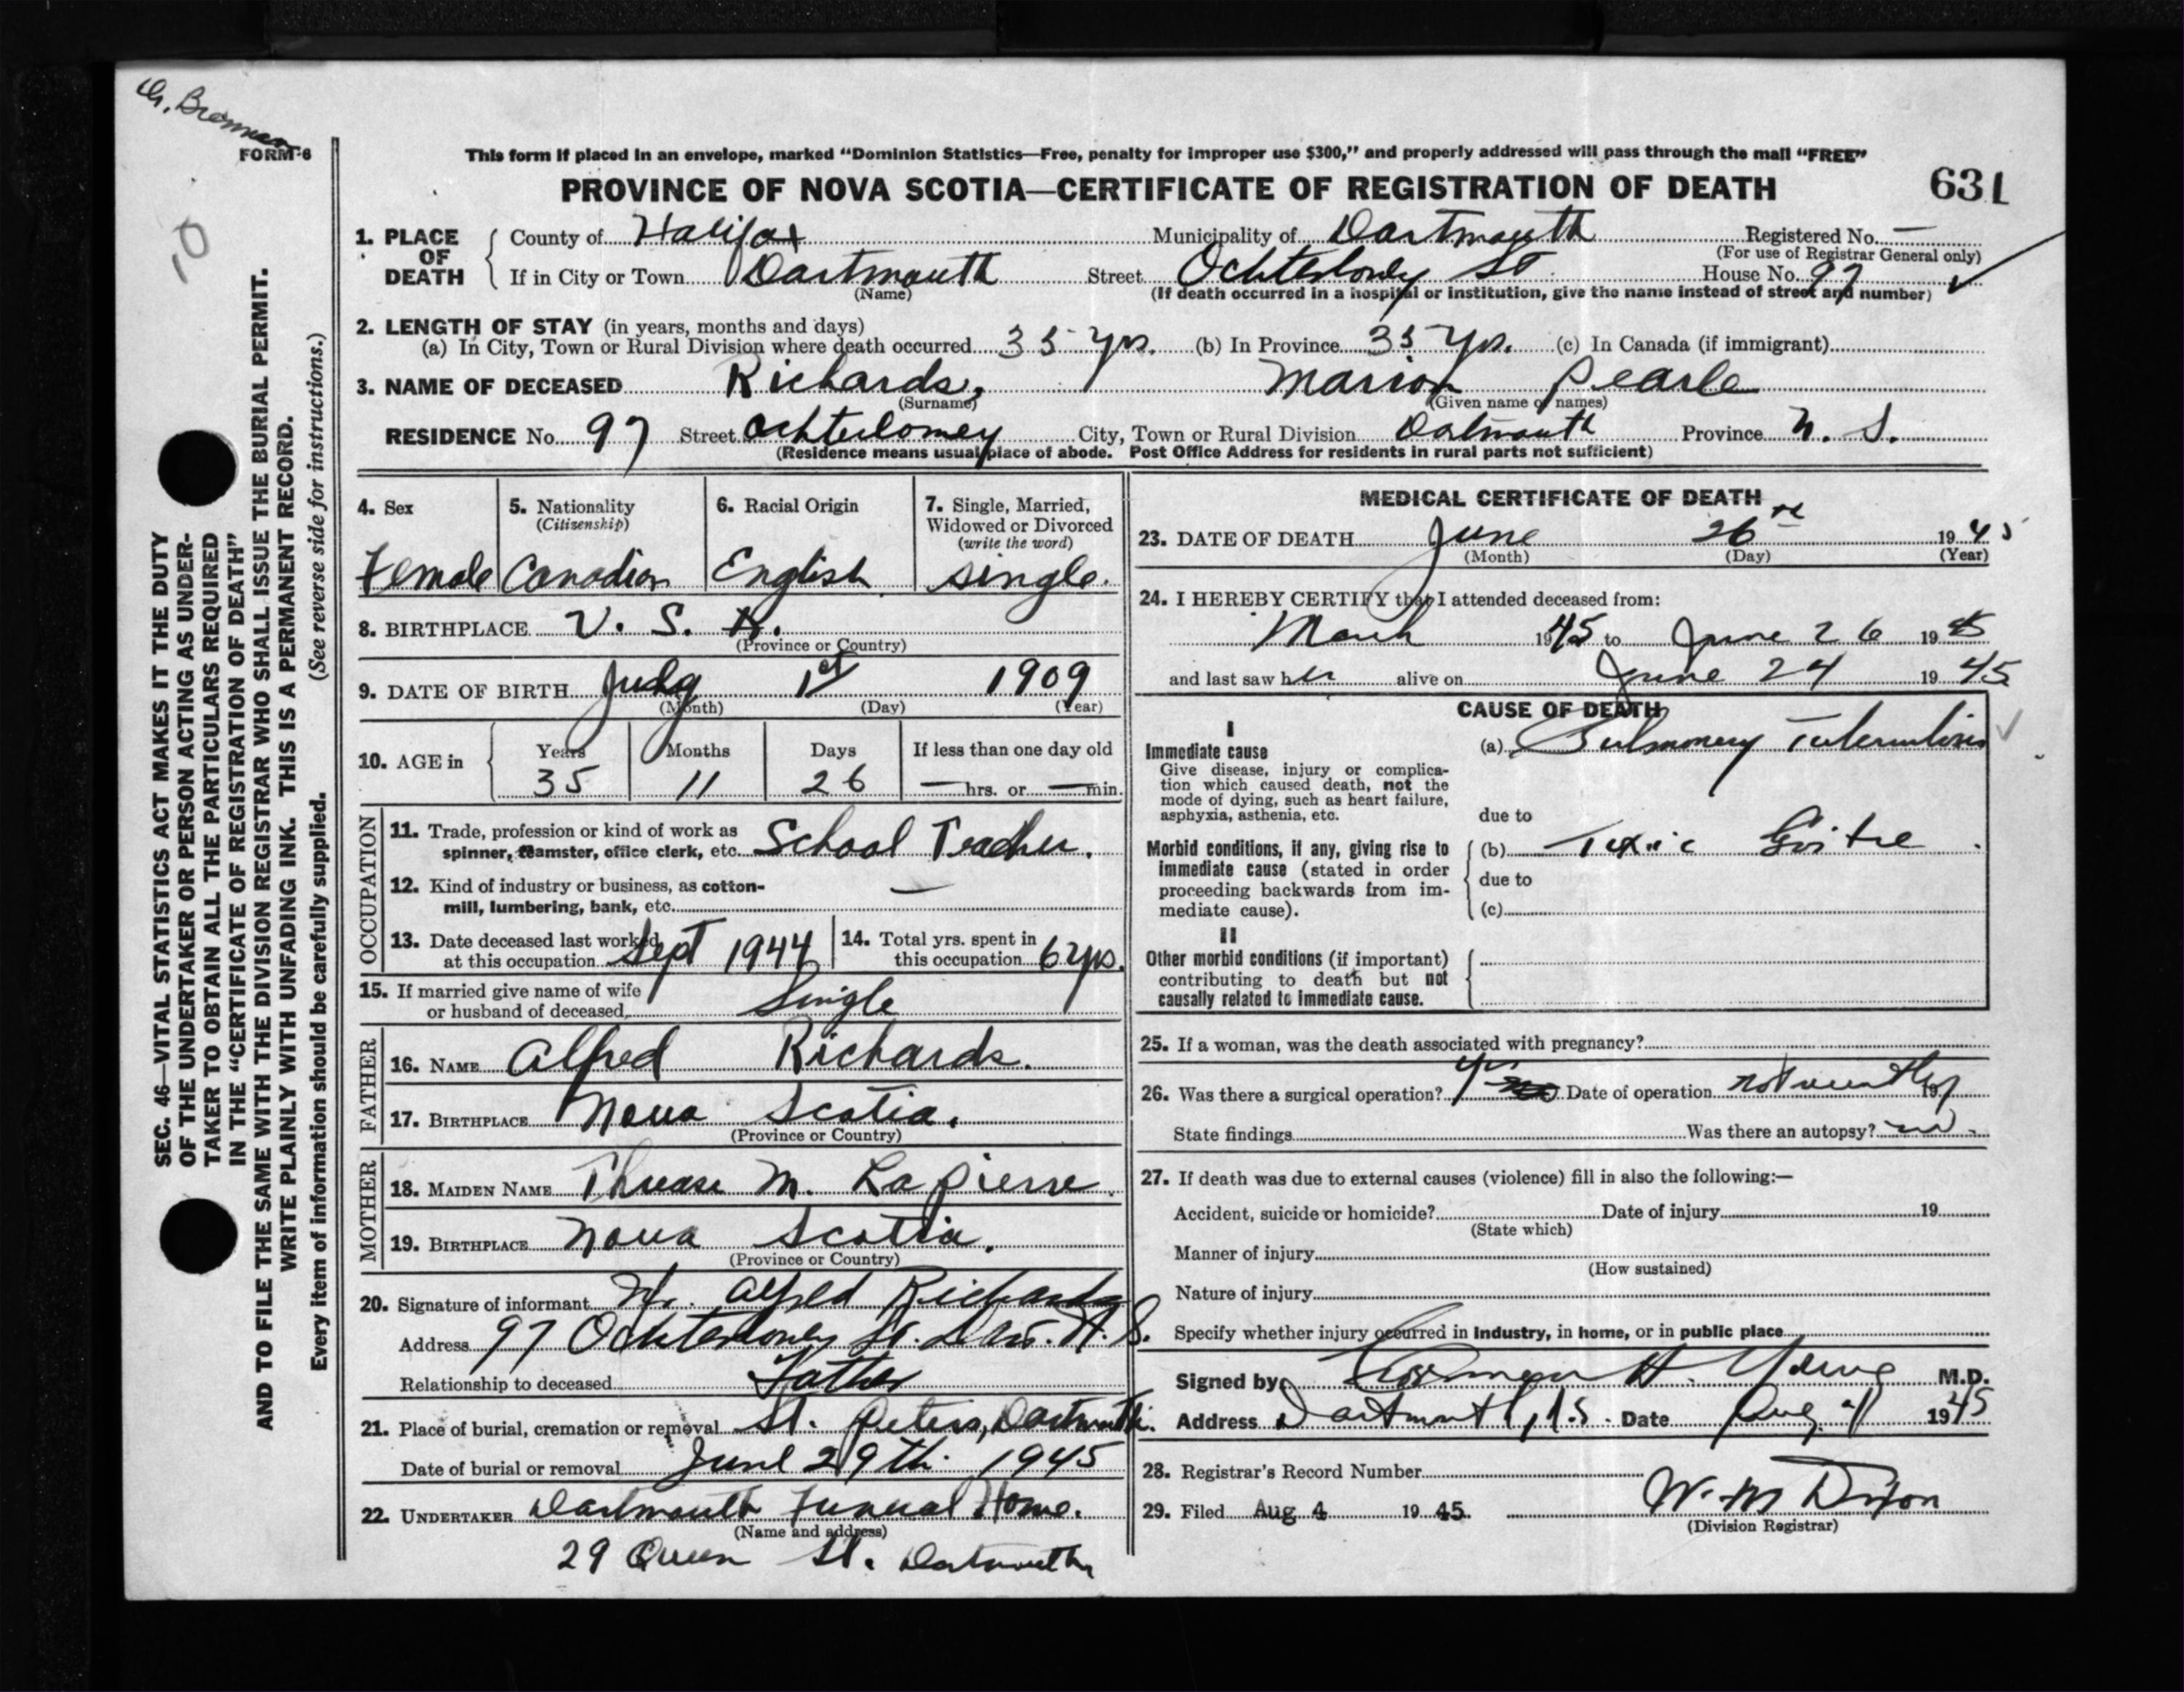 FORM 6
10
This form if placed in an envelope, marked "Dominion Statistics—Free, penalty for improper use $300," and properly addressed will pass through the mail "FREE"
PROVINCE OF NOVA SCOTIA—CERTIFICATE OF REGISTRATION OF DEATH 631
1. PLACE OF DEATH County of Halifax Municipality of Dartmouth Registered No. —
(For use of Registrar General only)
If in City or Town Dartmouth Street Ochterloney St. House No. 97
(Name) (If death occurred in a hospital or institution, give the name instead of street and number)
2. LENGTH OF STAY (in years, months and days)
(a) In City, Town or Rural Division where death occurred 35 yrs. (b) In Province 35 yrs. (c) In Canada (if immigrant)
3. NAME OF DECEASED Richards, Marion Pearle
(Surname) (Given name or names)
RESIDENCE No. 97 Street Ochterloney City, Town or Rural Division Dartmouth Province N. S.
(Residence means usual place of abode. Post Office Address for residents in rural parts not sufficient)
SEC. 46—VITAL STATISTICS ACT MAKES IT THE DUTY
OF THE UNDERTAKER OR PERSON ACTING AS UNDER-
TAKER TO OBTAIN ALL THE PARTICULARS REQUIRED
IN THE "CERTIFICATE OF REGISTRATION OF DEATH"
AND TO FILE THE SAME WITH THE DIVISION REGISTRAR WHO SHALL ISSUE THE BURIAL PERMIT.
WRITE PLAINLY WITH UNFADING INK. THIS IS A PERMANENT RECORD.
Every item of information should be carefully supplied. (See reverse side for instructions.)
4. Sex 5. Nationality (Citizenship) 6. Racial Origin 7. Single, Married, Widowed or Divorced (write the word)
Female Canadian English single.
8. BIRTHPLACE U. S. A.
(Province or Country)
9. DATE OF BIRTH July 1st 1909
(Month) (Day) (Year)
10. AGE in Years Months Days If less than one day old
35 11 26 — hrs. or — min.
OCCUPATION
11. Trade, profession or kind of work as
spinner, teamster, office clerk, etc. School Teacher.
12. Kind of industry or business, as cotton-
mill, lumbering, bank, etc. —
13. Date deceased last worked
at this occupation Sept 1944
14. Total yrs. spent in
this occupation 6 yrs.
15. If married give name of wife
or husband of deceased Single
FATHER
16. NAME Alfred Richards.
17. BIRTHPLACE Nova Scotia.
(Province or Country)
MOTHER
18. MAIDEN NAME M. LaPierre
19. BIRTHPLACE Nova Scotia.
(Province or Country)
20. Signature of informant Mr. Alfred Richards
Address 97 Ochterloney St. Dart. N. S.
Relationship to deceased Father
21. Place of burial, cremation or removal St. Peters, Dartmouth.
Date of burial or removal June 29th. 1945
22. UNDERTAKER Dartmouth Funeral Home.
(Name and address)
29 Queen St. Dartmouth
MEDICAL CERTIFICATE OF DEATH
23. DATE OF DEATH June 26th 1945
(Month) (Day) (Year)
24. I HEREBY CERTIFY that I attended deceased from:
March 1945 to June 26 1945
and last saw her alive on June 24 1945
CAUSE OF DEATH
I
Immediate cause
Give disease, injury or complica-
tion which caused death, not the
mode of dying, such as heart failure,
asphyxia, asthenia, etc.
(a) Pulmonary Tuberculosis
due to
Morbid conditions, if any, giving rise to
immediate cause (stated in order
proceeding backwards from im-
mediate cause).
(b) Toxic Goitre
due to
(c)
II
Other morbid conditions (if important)
contributing to death but not
causally related to immediate cause.
25. If a woman, was the death associated with pregnancy?
26. Was there a surgical operation? yes Date of operation not recently 19
State findings Was there an autopsy? no.
27. If death was due to external causes (violence) fill in also the following:—
Accident, suicide or homicide? Date of injury 19
(State which)
Manner of injury
(How sustained)
Nature of injury
Specify whether injury occurred in industry, in home, or in public place
Signed by H. Young M.D.
Address Dartmouth, N.S. Date Aug. 4 1945
28. Registrar's Record Number
29. Filed Aug 4 1945. W. M Dixon
(Division Registrar)